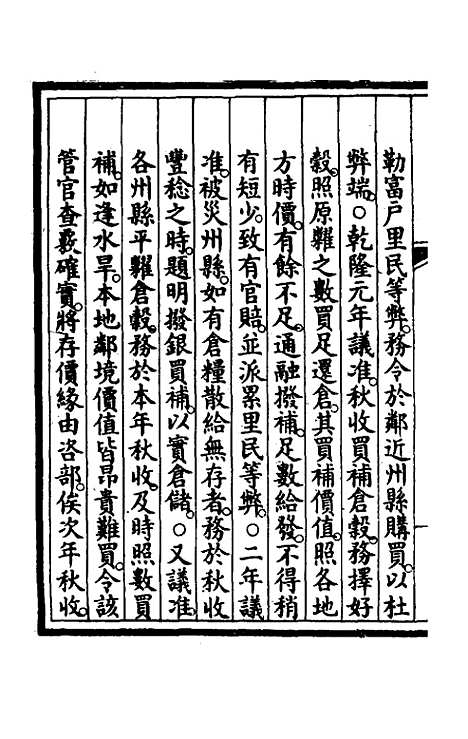 勒富戶里民等弊。務令於鄰近州縣購買。以杜
弊端。○乾隆元年議准。秋收買補倉穀。務擇好
穀。照原糶之數買足還倉。其買補價值。照各地
方時價。有餘不足。通融撥補。足數給發。不得稍
有短少。致有官賠。並派累里民等弊。○二年議
准。被災州縣。如有倉糧散給無存者。務於秋收
豐稔之時。題明撥銀買補。以實倉儲。○又議准。
各州縣平糶倉穀。務於本年秋收。及時照數買
補。如逢水旱。本地鄰境價值皆昂貴難買。令該
管官查覈確實。將存價緣由咨部。俟次年秋收。